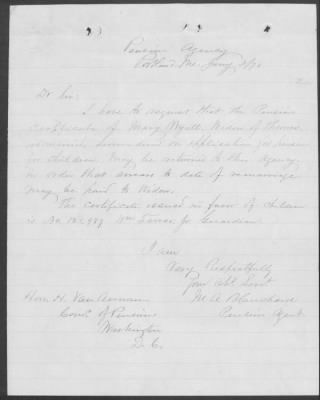 Pension Agency
Portland Me. Jany
Dr Sir.
I have to request that the Pension
certificate of Mary Widow of Thomas
on application for
for children. May be returned to this Agency,
in order that arrears to date of remarriage
may be paid to Widow.
The certificate issued in favor of children
is No Wm Guardian
I am
Very Respectfully
Your Obt. Servt
M. A. Blanchard
Pension Agent
Hon. H. Van Aernam
Com'r of Pensions
Washington
D. C.